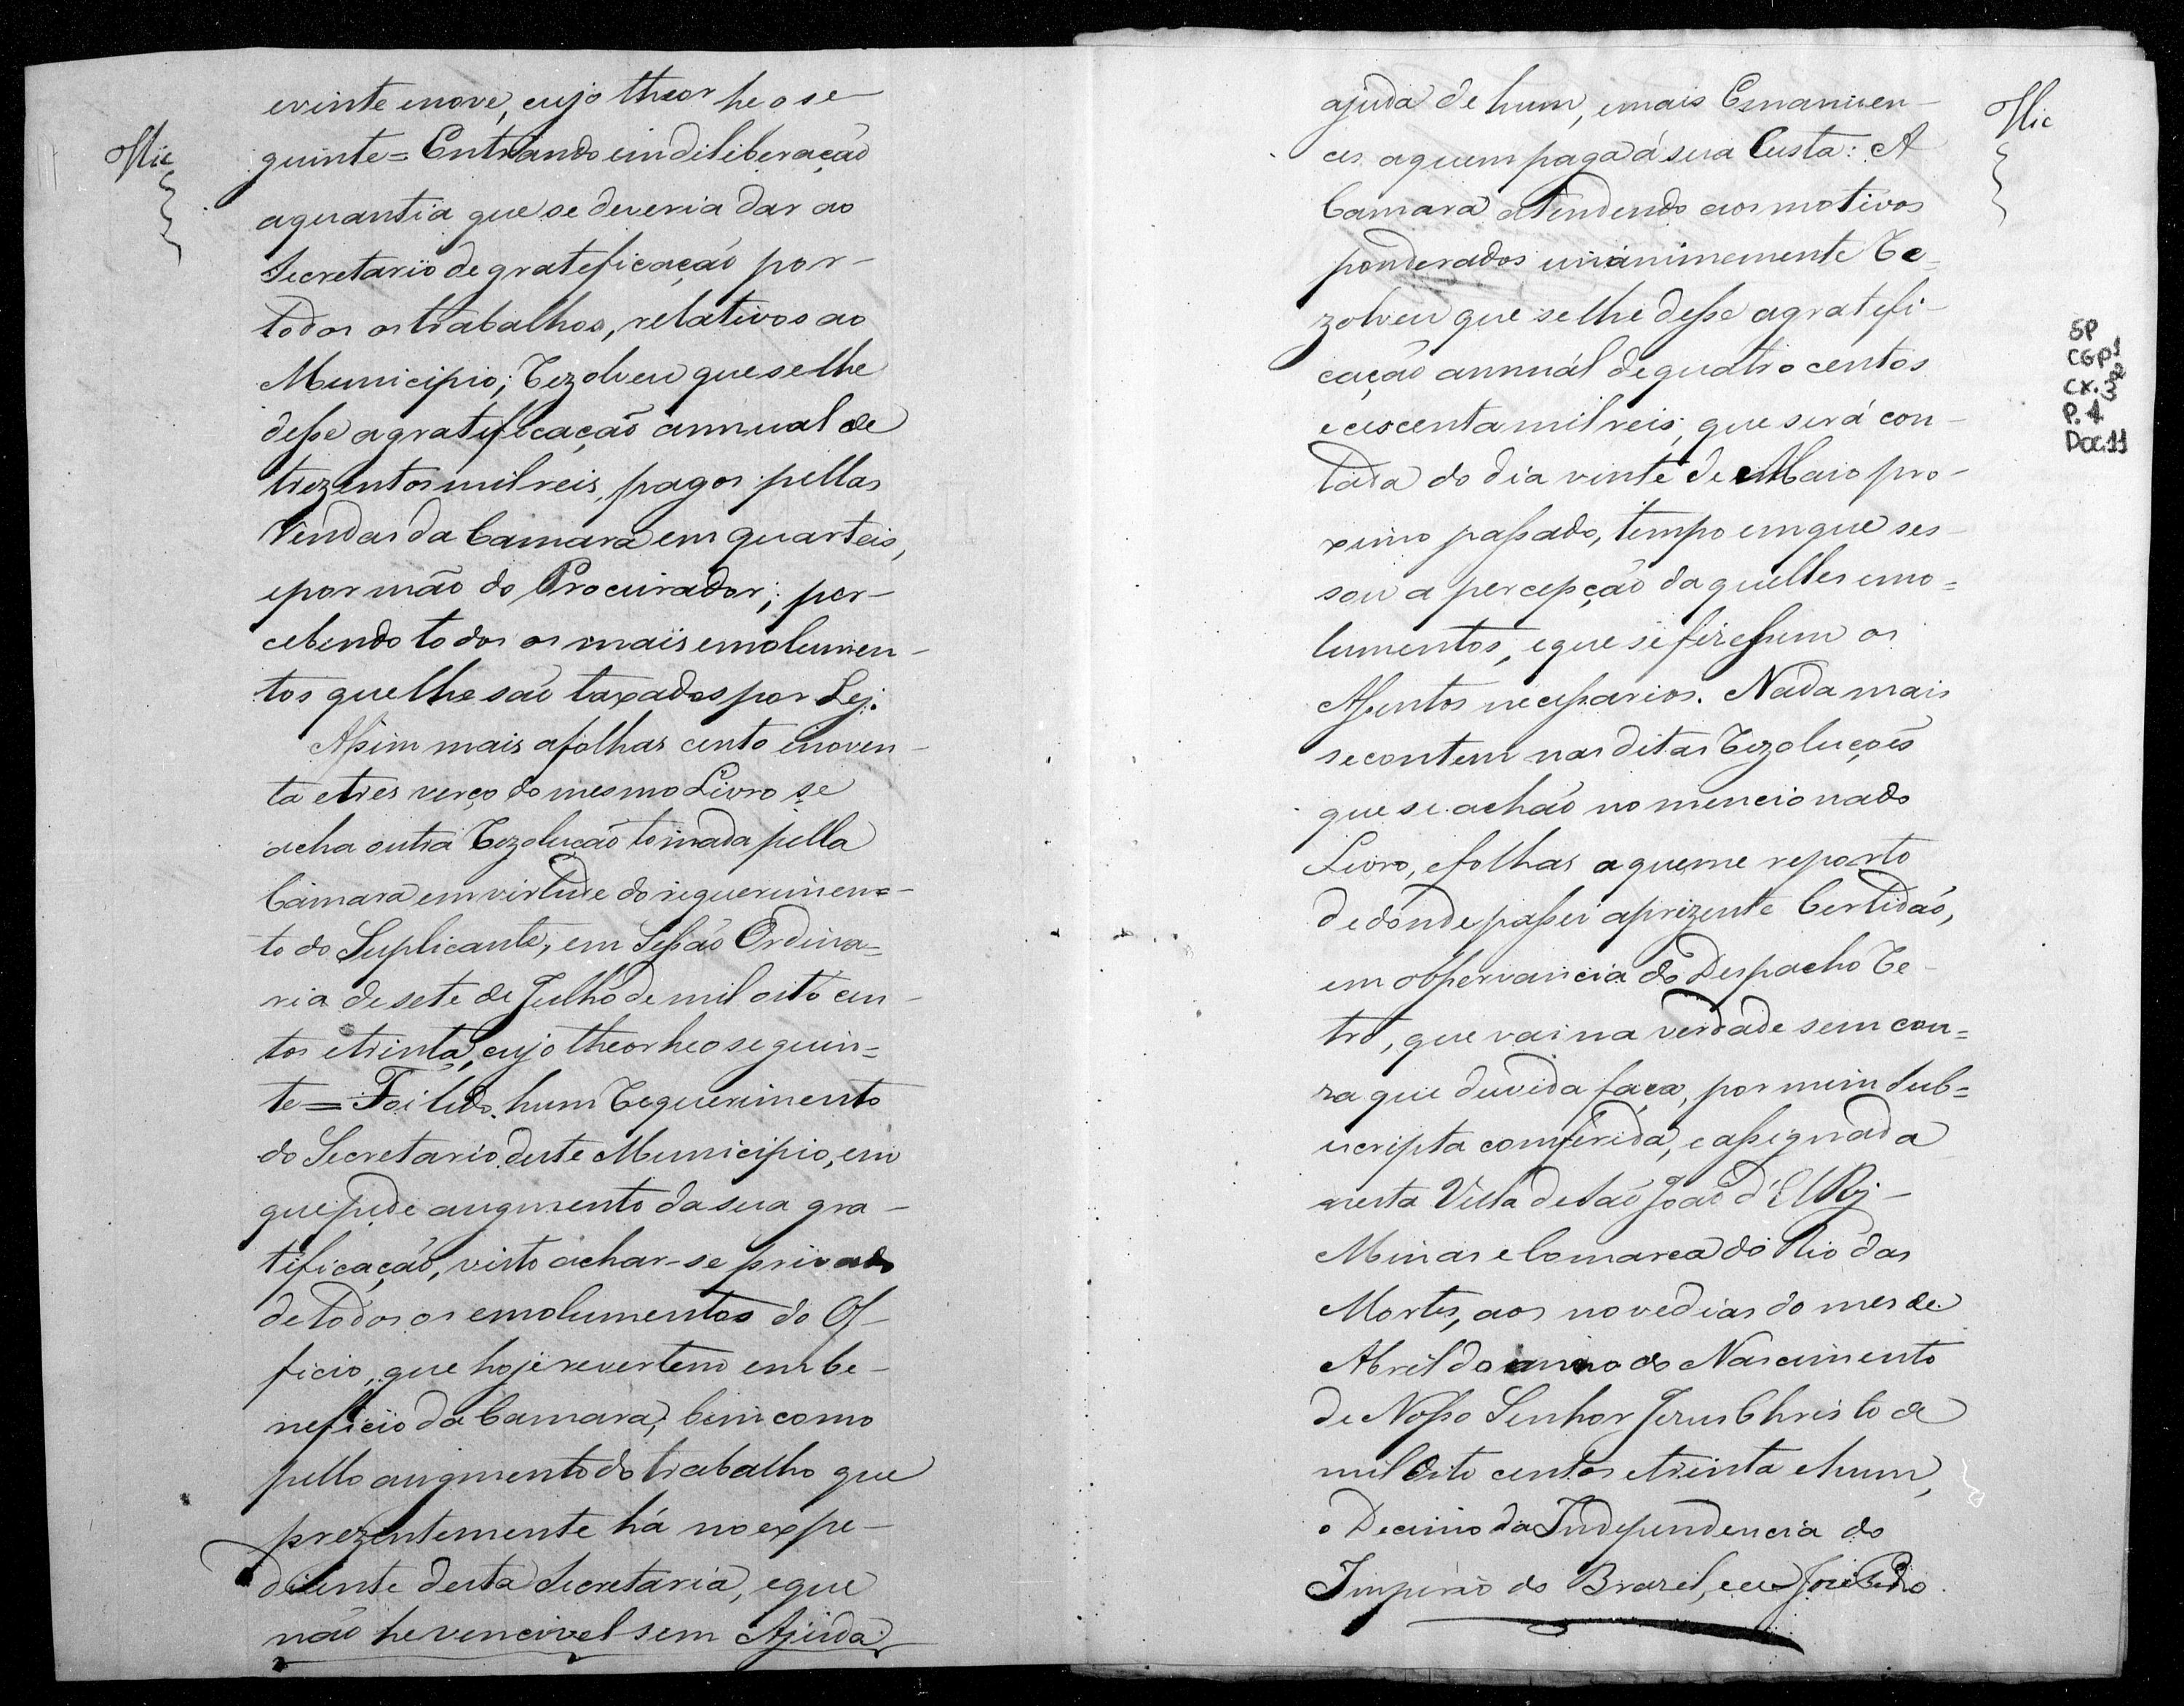 evinte enove, cujo theor he o se-
guinte = Entrando em diliberação
aquantia que se deveria dar ao
Secretario de gratificação por-
todos os trabalhos, relativos ao
Municipio; Rezolveu que selhe
desse agratificação annual de
trezentos mil reis, pagos pellas
Rendas da Camara em quarteis,
epor mão do Procurador; per-
cebendo todos os mais emolumen-
tos quelhe são taxados por Lej.
Assim mais afolhas cento enoven-
ta etres verço do mesmo Livro se
acha outra Rezolução tomada pella
Camara em virtude do requerimen-
to do Suplicante, em Sessão Ordina=
ria de sete de Julho de mil oito cen-
tos etrinta, cujo theor heo seguin=
te = Foi lido hum Requerimento
do Secretario deste Municipio, em
que pede augmento da sua gra-
tificação, visto achar-se privado
detodos os emolumentos do Of-
ficio, que hoje revertem em be-
neficio da Camara; bem como
pello augmento do trabalho que
prezentemente há no expe-
diente desta Secretaria, eque
não he vencivel sem Ajuda
Offic
ajuda de hum, emais Emanuen-
ces aquem paga á sua Custa: A
Camara atendendo aos motivos
ponderados unánimemente Re-
zolveu que selhe desse agratifi-
cação annuál de quatro centos
ecescenta mil reis, que será con-
tada do dia vinte de Maio pro-
ximo passado, tempo emque ses-
sou a percepção daquelles emo=
lumentos, eque se fizessem os
Assentos necessarios. Nada mais
secontem nas ditas Rezoluções
que se achão no mencionado
Livro, efolhas aqueme reporto
dedonde passei aprezente Certidão,
em observancia do Despacho Re-
tro, que vai na verdade sem cou=
za que duvida faça, por mim sub=
scripta comferida, eassignada
nesta Villa de São João d'El Rej-
Minas e Comarca do Rio das
Mortes, aos nove dias do mes de
Abril do anno do Nascimento
de Nosso Senhor Jezus Christo de
mil Oito centos etrinta ehum,
o Decimo da Independencia do
Imperio do Brazil, eu José Pedro
Offic
SP
CGP1
CX.32
P.1
Doc.11